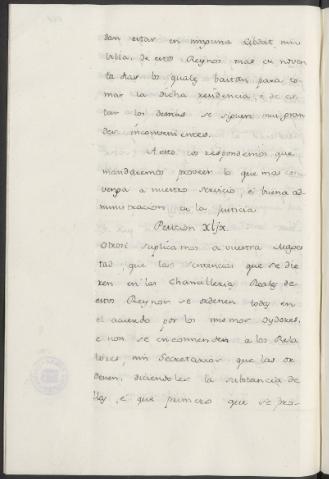 dan estar en ninguna Cibdat nin
Villa, de estos Reynos mas de noven
ta dias los quales bastan para to
mar la dicha residencia, e de es
tar los demas se siguen muy gran
des inconvenientes.
A esto vos respondemos que
mandaremos proveer lo que mas con
venga a nuestro servicio, e buena ad-
ministracion de la justicia.
Peticion Xljx.
Otrosi suplicamos a vuestra Mages
tad, que las sentencias que se die
ren en las Chancillerias Reales de
estos Reynos se ordenen todas en
el acuerdo por los mismos oydores,
e non se encomienden a los Rela
tores, nin Secretarios que las or
denen, diciendoles la substancia de
llas, e que primero que se pro-